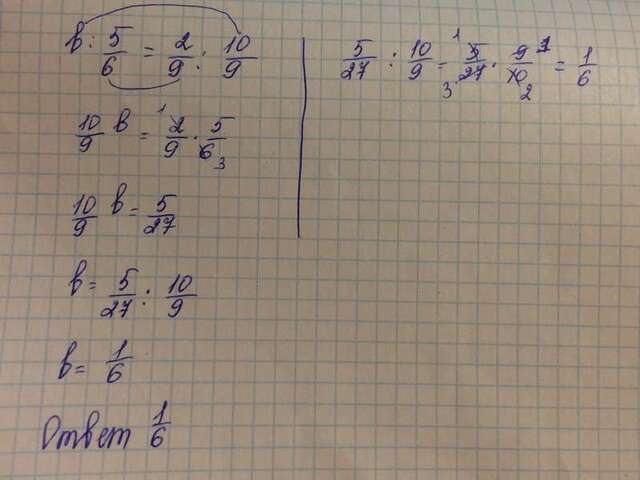 b : 5/6 = 2/9 : 10/9
10/9 b = 2/9 · 5/6 1 3
10/9 b = 5/27
b = 5/27 : 10/9
b = 1/6
Ответ 1/6
5/27 : 10/9 = 5/27 · 9/10 = 1/6 1 3 1 2